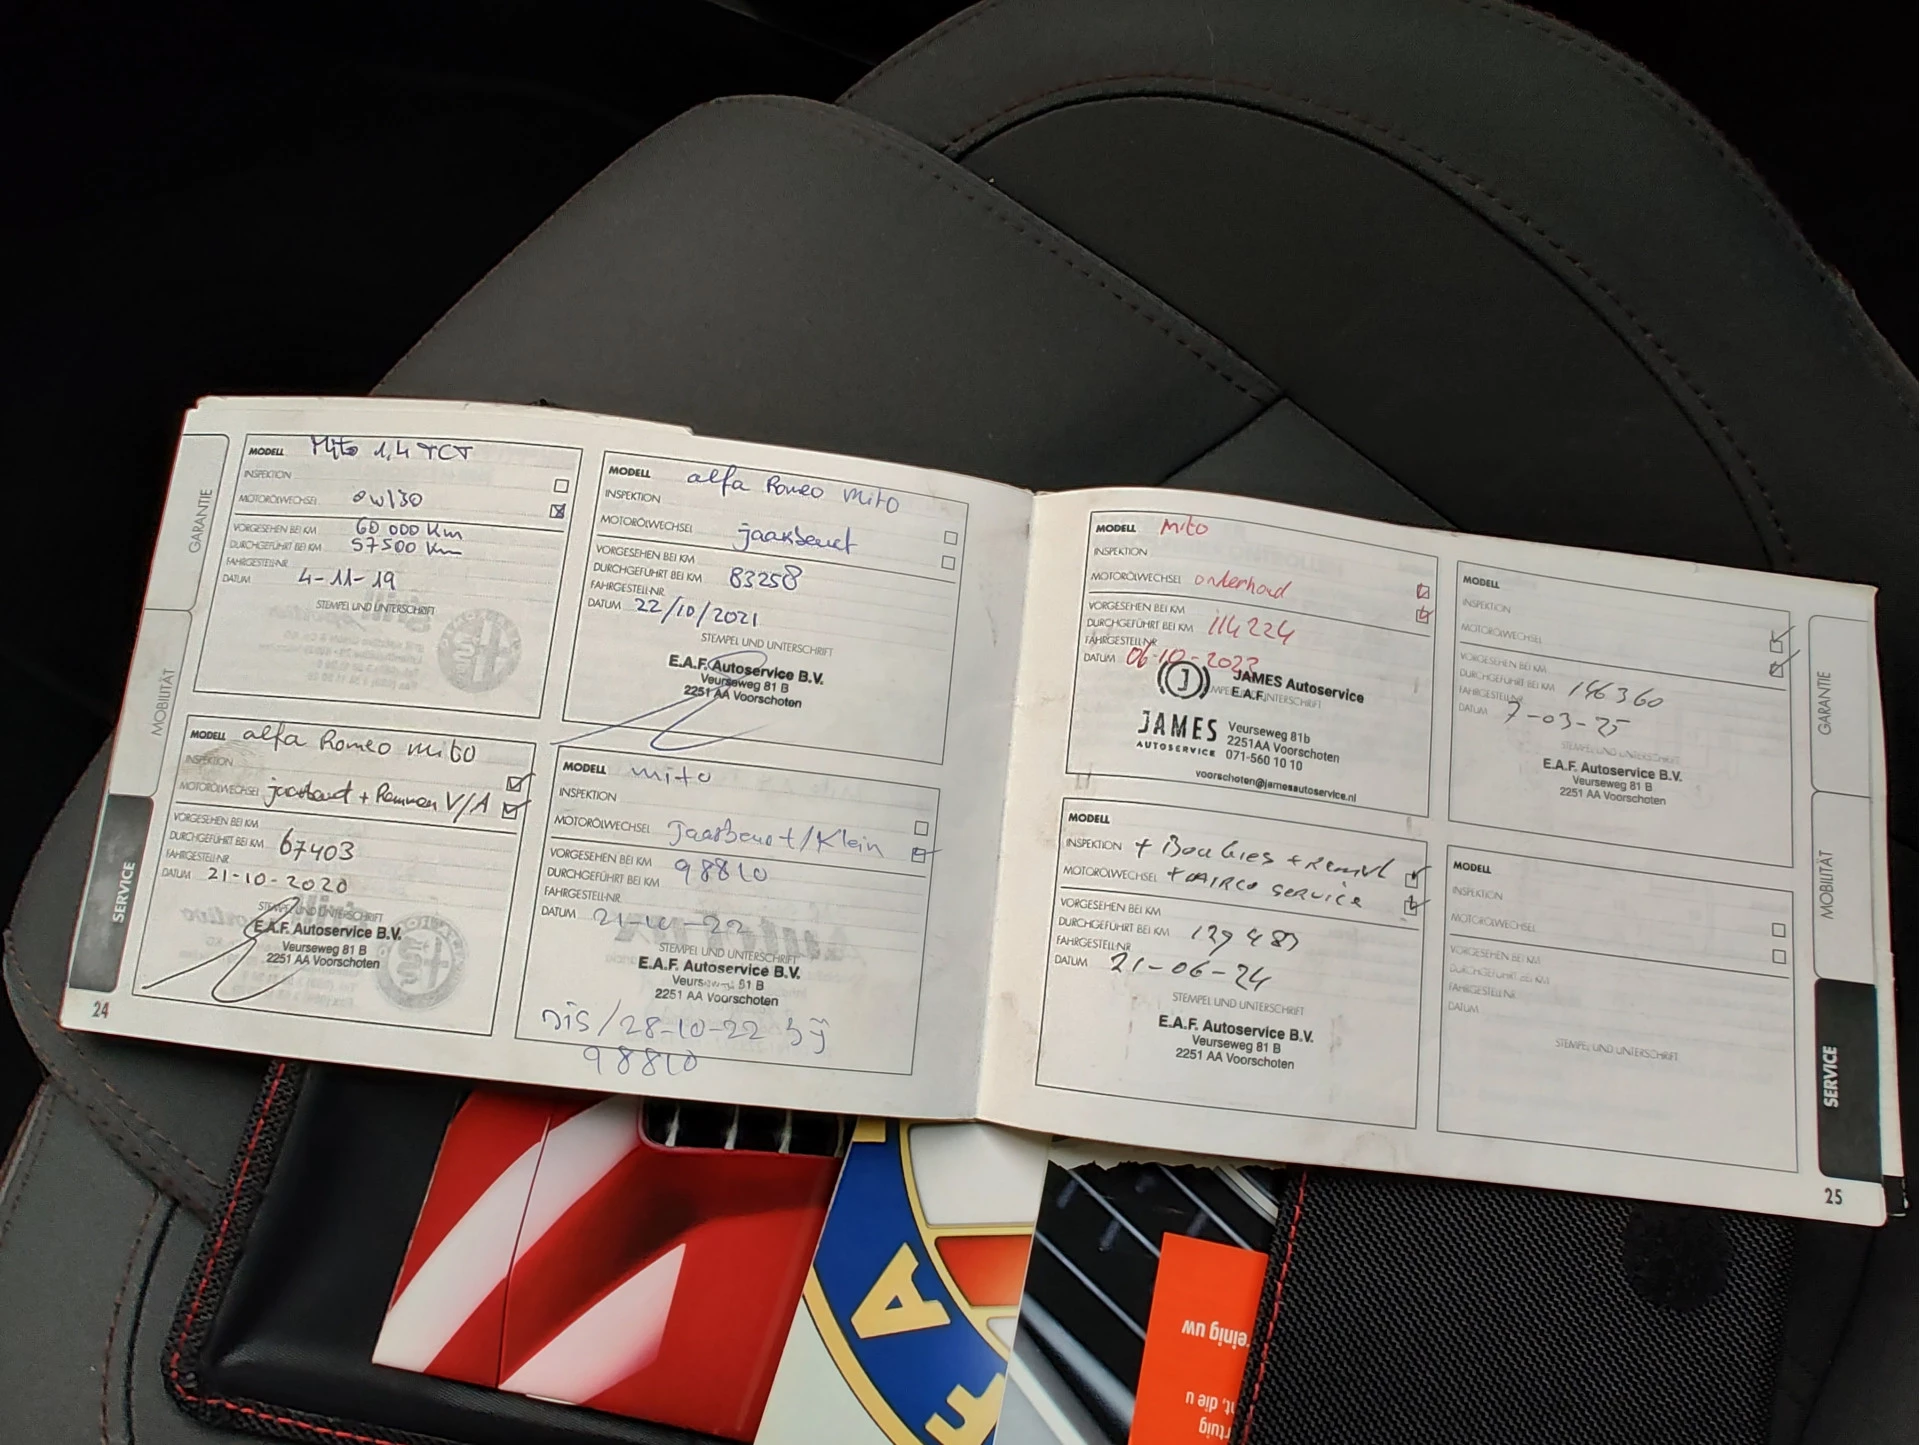 GARANTIE
MOBILITÄT
SERVICE
MODELL Mito 1,4 TCT
INSPEKTION
MOTORÖLWECHSEL 0w/30
VORGESEHEN BEI KM 60 000 Km
DURCHGEFÜHRT BEI KM 57500 Km
FAHRGESTELL-NR.
DATUM 4-11-19
STEMPEL UND UNTERSCHRIFT
MODELL alfa Romeo mito
INSPEKTION
MOTORÖLWECHSEL jaarbeurt + Remmen V/A
VORGESEHEN BEI KM
DURCHGEFÜHRT BEI KM 67403
FAHRGESTELL-NR.
DATUM 21-10-2020
STEMPEL UND UNTERSCHRIFT
E.A.F. Autoservice B.V.
Veurseweg 81 B
2251 AA Voorschoten
24
MODELL alfa Romeo mito
INSPEKTION
MOTORÖLWECHSEL jaarbeurt
VORGESEHEN BEI KM
DURCHGEFÜHRT BEI KM 83258
FAHRGESTELL-NR.
DATUM 22/10/2021
STEMPEL UND UNTERSCHRIFT
E.A.F. Autoservice B.V.
Veurseweg 81 B
2251 AA Voorschoten
MODELL mito
INSPEKTION
MOTORÖLWECHSEL Jaarbeurt/Klein
VORGESEHEN BEI KM 98810
DURCHGEFÜHRT BEI KM
FAHRGESTELL-NR.
DATUM 21-10-22
STEMPEL UND UNTERSCHRIFT
E.A.F. Autoservice B.V.
Veurseweg 81 B
2251 AA Voorschoten
DIS/28-10-22 bij
98810
MODELL Mito
INSPEKTION
MOTORÖLWECHSEL onderhoud
VORGESEHEN BEI KM
DURCHGEFÜHRT BEI KM 114224
FAHRGESTELL-NR.
DATUM 06-10-2023
STEMPEL UND UNTERSCHRIFT
J JAMES Autoservice
E.A.F.
JAMES
AUTOSERVICE
Veurseweg 81b
2251AA Voorschoten
071-560 10 10
voorschoten@jamesautoservice.nl
MODELL
INSPEKTION + Bougies + Remvl
MOTORÖLWECHSEL + AIRCO SERVICE
VORGESEHEN BEI KM
DURCHGEFÜHRT BEI KM 129483
FAHRGESTELL-NR.
DATUM 21-06-24
STEMPEL UND UNTERSCHRIFT
E.A.F. Autoservice B.V.
Veurseweg 81 B
2251 AA Voorschoten
MODELL
INSPEKTION
MOTORÖLWECHSEL
VORGESEHEN BEI KM
DURCHGEFÜHRT BEI KM 146360
FAHRGESTELL-NR.
DATUM 7-03-25
STEMPEL UND UNTERSCHRIFT
E.A.F. Autoservice B.V.
Veurseweg 81 B
2251 AA Voorschoten
MODELL
INSPEKTION
MOTORÖLWECHSEL
VORGESEHEN BEI KM
DURCHGEFÜHRT BEI KM
FAHRGESTELL-NR.
DATUM
STEMPEL UND UNTERSCHRIFT
GARANTIE
MOBILITÄT
SERVICE
25
einig uw
die u
A
F